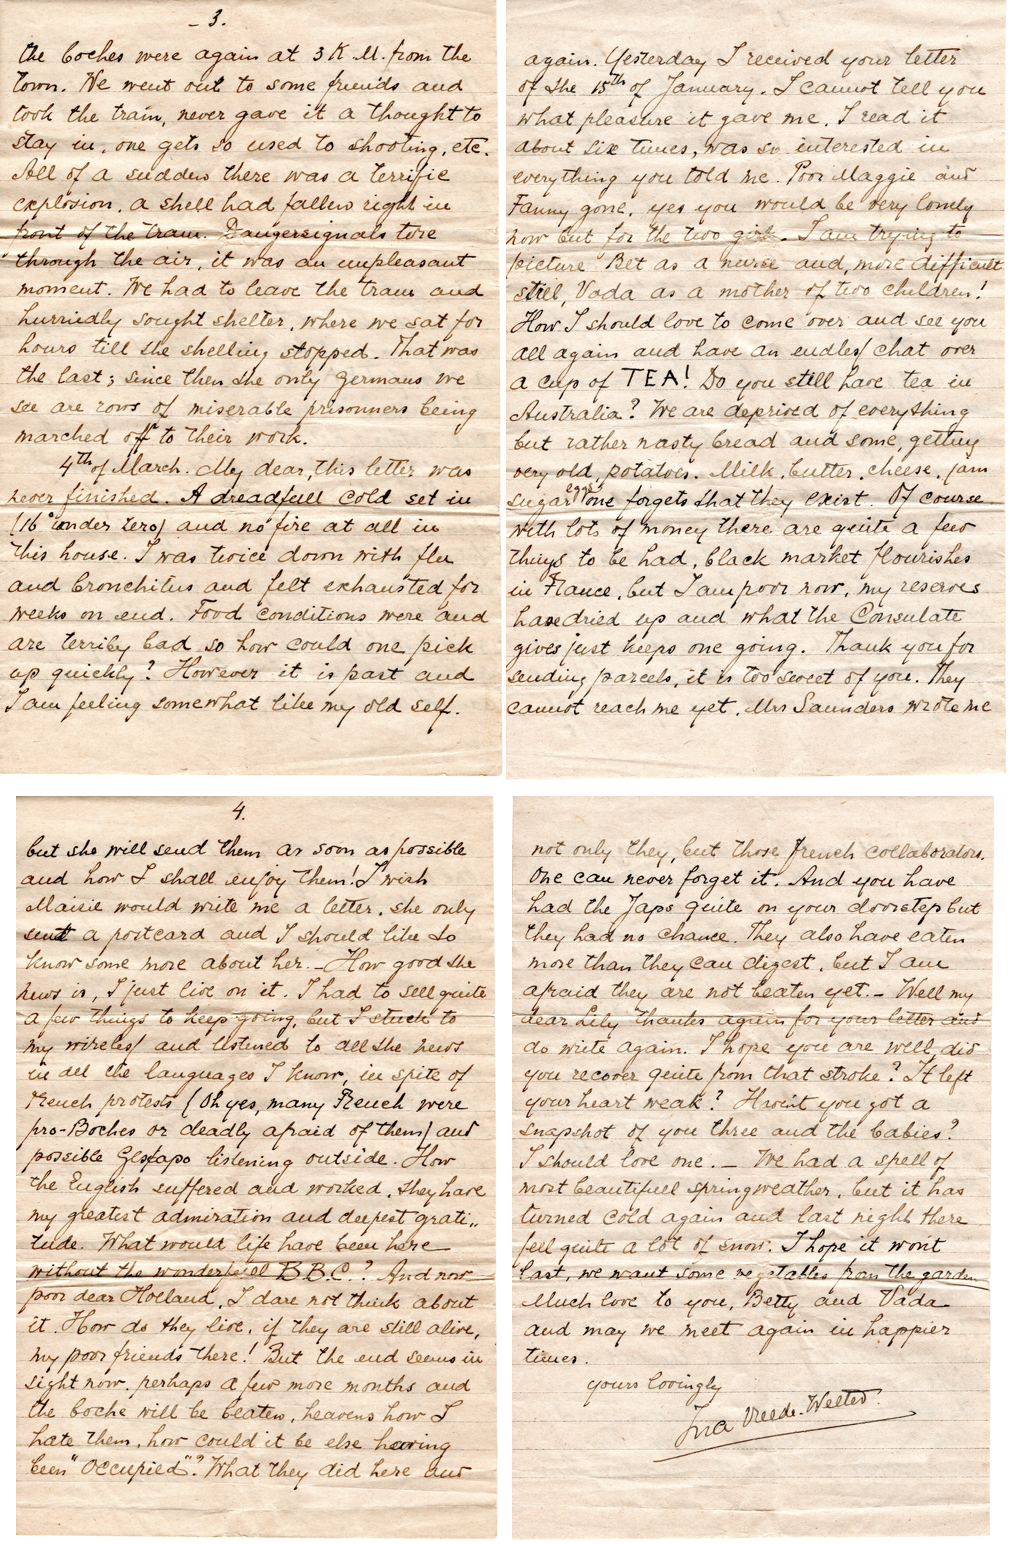 - 3.
the boches were again at 3 K.M. from the
town. We went out to some friends and
took the train, never gave it a thought to
stay in, one gets so used to shooting, etc.
All of a sudden there was a terrific
explosion, a shell had fallen right in
front of the tram. Dangersignals tore
through the air, it was an unpleasant
moment. We had to leave the tram and
hurriedly sought shelter, where we sat for
hours till the shelling stopped. That was
the last; since then the only Germans we
see are rows of miserable prisonners being
marched off to their work.
4th of March. My dear, this letter was
never finished. A dreadfull cold set in
(16° under zero) and no fire at all in
this house. I was twice down with flu
and bronchitus and felt exhausted for
weeks on end. Food conditions were and
are terribly bad so how could one pick
up quickly? However it is past and
I am feeling somewhat like my old self.
again. Yesterday I received your letter
of the 15th of January. I cannot tell you
what pleasure it gave me. I read it
about six times, was so interested in
everything you told me. Poor Maggie and
Fanny gone, yes you would be very lonely
now but for the two girls. I am trying to
picture Bet as a nurse and, more difficult
still, Vada as a mother of two children!
How I should love to come over and see you
all again and have an endless chat over
a cup of TEA! Do you still have tea in
Australia? We are deprived of everything
but rather nasty bread and some, getting
very old, potatoes. Milk, butter, cheese, jam
sugar eggs one forgets that they exist. Of course
with lots of money there are quite a few
things to be had, black market flourishes
in France, but I am poor now, my reserves
have dried up and what the Consulate
gives just keeps one going. Thank you for
sending parcels, it is too sweet of you. They
cannot reach me yet, Mrs Saunders wrote me
4.
but she will send them as soon as possible
and how I shall enjoy them! I wish
Maisie would write me a letter, she only
sent a postcard and I should like to
know some more about her. - How good the
news is, I just live on it. I had to sell quite
a few things to keep going, but I stuck to
my wireless and listened to all the news
in all the languages I know, in spite of
French protests (Oh yes, many French were
pro-Boches or deadly afraid of them) and
possible Gestapo listening outside. How
the English suffered and worked, they have
my greatest admiration and deepest grati„
tude. What would life have been here
without the wonderfull B.B.C.? And now
poor dear Holland, I dare not think about
it. How do they live, if they are still alive,
my poor friends there! But the end seems in
sight now, perhaps a few more months and
the boche will be beaten, heavens how I
hate them, how could it be else having
been "Occupied"? What they did here and
not only they, but those french collaborators.
One can never forget it. And you have
had the Japs quite on your doorstep but
they had no chance. They also have eaten
more than they can digest, but I am
afraid they are not beaten yet. - Well my
dear Lily thanks again for your letter and
do write again. I hope you are well, did
you recover quite from that stroke? It left
your heart weak? Havn't you got a
snapshot of you three and the babies?
I should love one. - We had a spell of
most beautifull springweather, but it has
turned cold again and last night there
fell quite a lot of snow. I hope it won't
last, we want some vegetables from the garden
Much love to you, Betty and Vada
and may we meet again in happier
times.
yours lovingly
Ina Vreede-Welted.